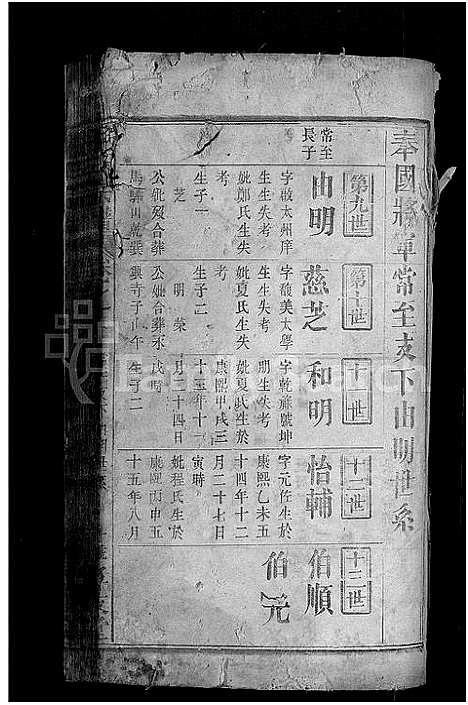 奉國將軍常至支下由明世系
第九世
第十世
十一世
十二世
十三世
常至
長子
由明
慈芝
和明
怡輔
伯順
伯元
字啟太州庠
生生失考
妣鄭氏生失
考
生子一
芝
公妣歿合葬
字馥美太學
生生失考
妣夏氏生失
考
生子二
明 榮
公妣合葬永
鎮寺子山午
字乾蘇號坤
明生失考
妣夏氏生於
康熙甲戌三
十三年十一
月二十四日
戌時
生子二
字元佐生於
康熙乙未五
十四年十二
月二十七日
寅時
妣程氏生於
康熙丙申五
十五年八月